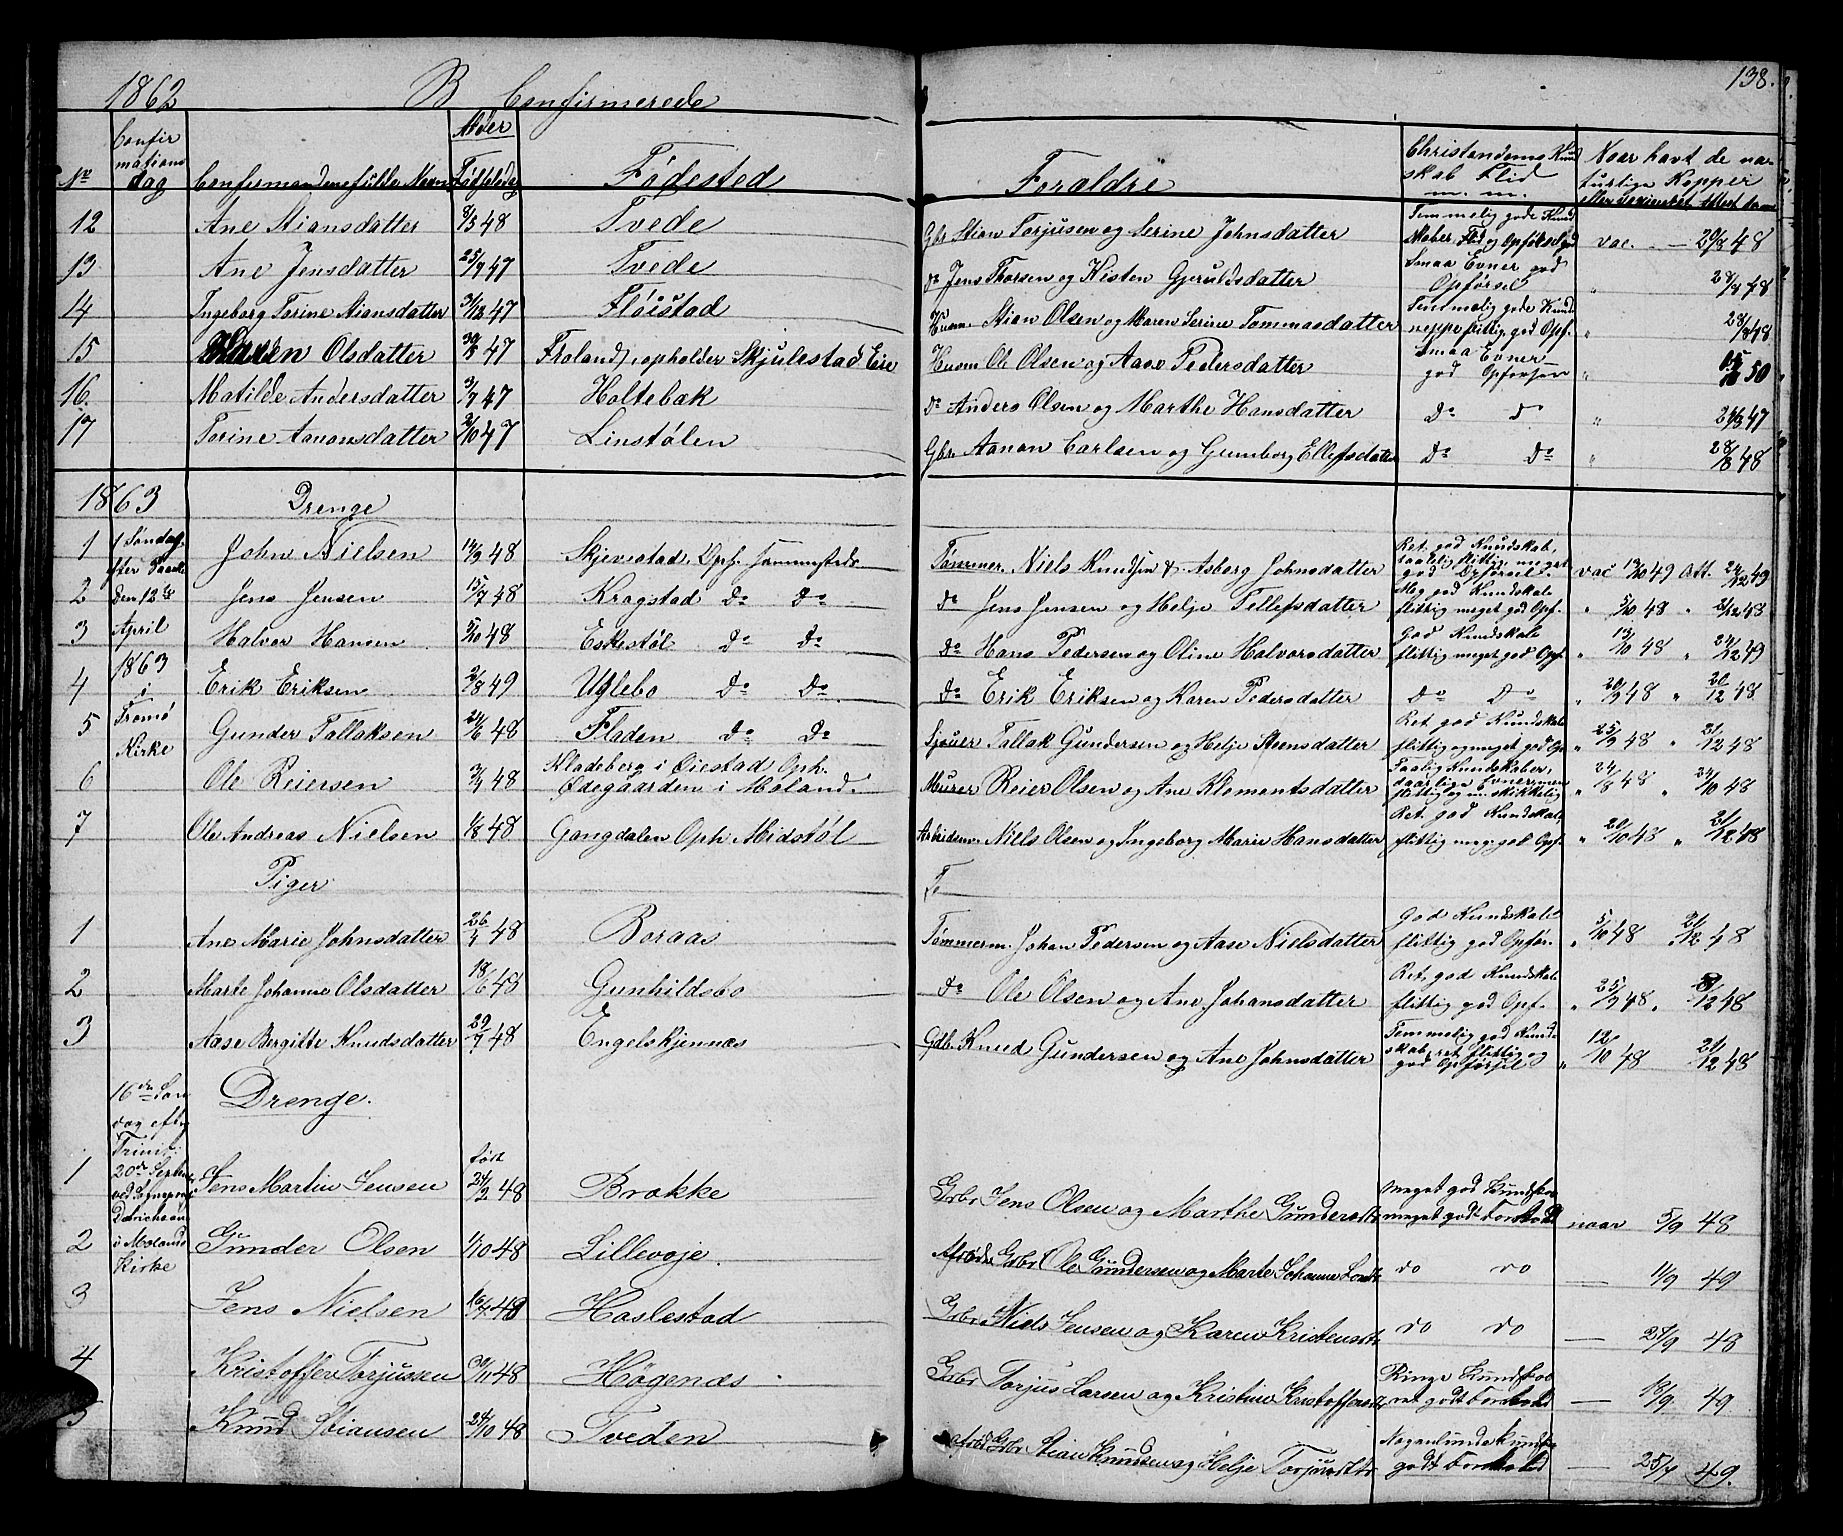 1862 B Confirmerede 138.
No Confirmations dag Confirmandenes fulde Navn Alder Fødselsdag Fødested Forældre Christendoms Kundskab Flid m. m. Naar havt de naturlige Kopper eller vaccineret
12 Ane Stiansdatter 8/3 48 Tvede Gbr Stian Torjusen og Serine Johnsdatter Temmelig gode Kundskaber, Flid og Opførsel god vac. 20/8 48
13 Ane Jensdatter 25/9 47 Tvede do Jens Thorsen og Kisten Gjeruldsdatter Smaa Evner god Opførsel " 28/8 48
14 Ingeborg Torine Stiansdatter 31/12 47 Fløistad Husm Stian Olsen og Maren Serine Tommasdatter Temmelig gode Kund neppe flittig, god Opf. " 28/8 48
15 Karen Olsdatter 30/8 47 Froland, opholder Skjulestad Eie Husm Ole Olsen og Aase Pedersdatter Smaa Evner god Opførsen " 50
16. Matilde Andersdatter 3/7 47 Holtebak do Anders Olsen og Marthe Hansdatter do do " 47
17 Torine Aanonsdatter 2/10 47 Linstølen Gbr Aanon Carlsen og Gunborg Ellefsdatter do do " 28/8 48
1863 Drenge
1 1 Søndag John Nielsen 14/9 48 Skjevestad Oph. sammesteds Tømmer. Niels Knudsen & Asborg Johnsdatter Ret god Kundskab, flittig meget god Opførsel. vac 19/10 49 Att. 24/12 49
2 efter Paaske den 12te Jens Jensen 15/7 48 Kragstad do do do Jens Jensen og Helje Tellefsdatter Meg god Kundskab flittig meget god Opf. " 5/10 48 " 21/12 48
3 April Halvor Hansen 5/10 48 Eskestøl do do do Hans Pedersen og Oline Halvorsdatter God Kundskab flittig meget god Opf. " 13/10 48 " 24/12 49
4 1863 i Erik Eriksen 2/8 49 Uglebo do do do Erik Eriksen og Karen Pedersdatter do do " 20/9 48 " 20/12 48
5 Tromø Kirke Gunder Tallaksen 24/6 48 Fladen do do Sjouer Tallak Gundersen og Helje Steensdatter Ret god Kundskab flittig og meget god Op " 25/9 48 " 21/12 48
6 Ole Reiersen 3/4 48 Kladeberg i Øiestad Oph. Ødegaarden i Moland. Murer Reier Olsen og Ane Klementsdatter Taalig Kundskaber, daarlige Evner, men flittig og m. skikkelig " 24/8 48 " 24/10 48
7 Ole Andreas Nielsen 1/8 48 Gongdalen Oph. Midstøl Arbeidsm. Niels Olsen og Ingeborg Marie Hansdatter Ret god Kundskab, flittig meg. god Opf. " 20/10 48 " 21/12 48
Piger T
1 Ane Marie Johnsdatter 26/4 48 Boraas Tømmerm. Johan Pedersen og Aase Nielsdatter God Kundskab flittig god Opfør. " 5/10 48 " 21/12 48
2 Marte Johanne Olsdatter 18/6 48 Gunhildsbo do Ole Olsen og Ane Johansdatter Ret god Kundskab flittig god Opf. " 25/9 48 " 12 48
3 Aase Bergitte Knudsdatter 29/7 48 Engelskjennæs Gdb. Knud Gundersen og Ane Johnsdatter Temmelig god Kundskab, ret flittig og god Opførsel " 12/10 48 21/12 48
16de Søndag efter Drenge.
1 Trinit: 20de Septbr ved Sogneprest Jens Martin Jensen født 24/2 48 Brække Gbr Jens Olsen og Marthe Gundersdtr meget god Kundska meget godt Forhold naar 5/9 48
2 Didrichsen i Molands Kirke Gunder Olsen 1/10 48 Lillevoje Afdøde Gbr Ole Gundersen og Marte Johanne do do — 11/9 49
3 Jens Nielsen 16/4 48 Haslestad Gbr Niels Jensen og Karen Kristensdtr do do — 27/9 48
4 Kristoffer Torjussen 30/11 48 Høgenæs Gbr Torjus Larsen og Kristine Kristoffersdtr Ringe Kundskab ret godt Forhold — 18/9 49
5 Knud Stiansen 24/10 48 Tveden Afdød Gbr Stian Knudsen og Helje Torjusdtr Nogenlunde Kundsk godt Forhold — 25/7 49.